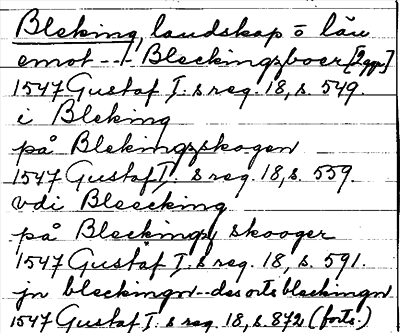 Bleking, landskap o län
emot --- Bleckingzboer [2 ggr]
1547 Gustaf I:s reg. 18, s. 549.
i Bleking
på Blekingzskogen
1547 Gustaf I:s reg. 18, s. 559.
vdi Bleecking
på Bleckingz skooger
1547 Gustaf I:s reg. 18, s. 591.
jn bleckingn -- des orts bleckingn
1547 Gustaf I:s reg. 18, s. 872 (forts.)